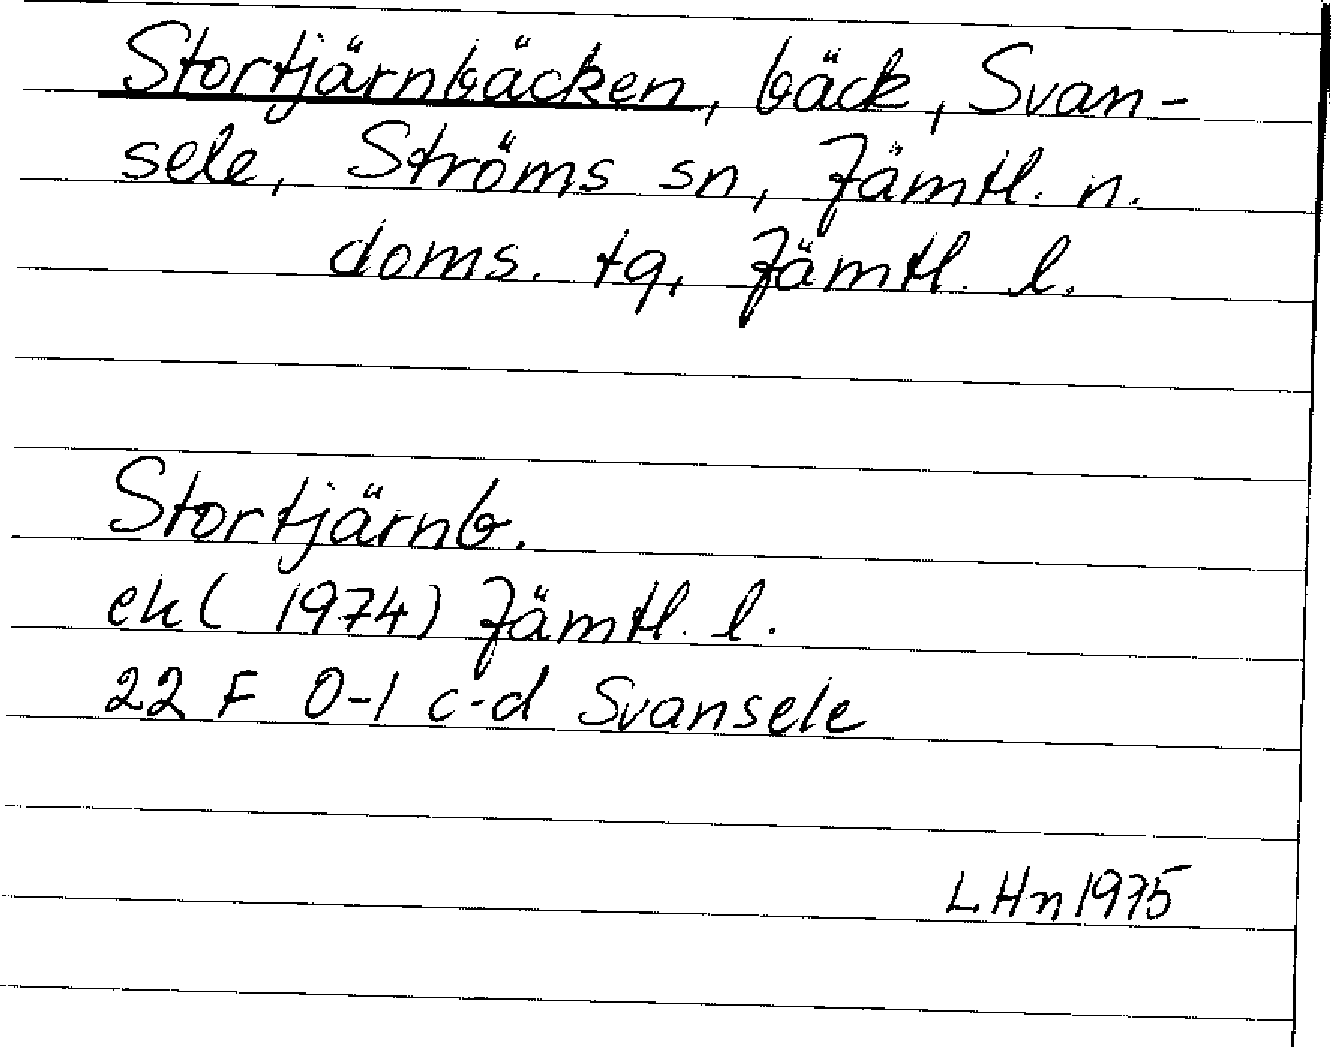 Stortjärnbäcken, bäck, Svan-
sele, Ströms sn, Jämtl. n.
doms. tg, Jämtl. l.
Stortjärnb.
ek( 1974) Jämtl. l.
22 F 0-1 c-d Svansele
LHn 1975